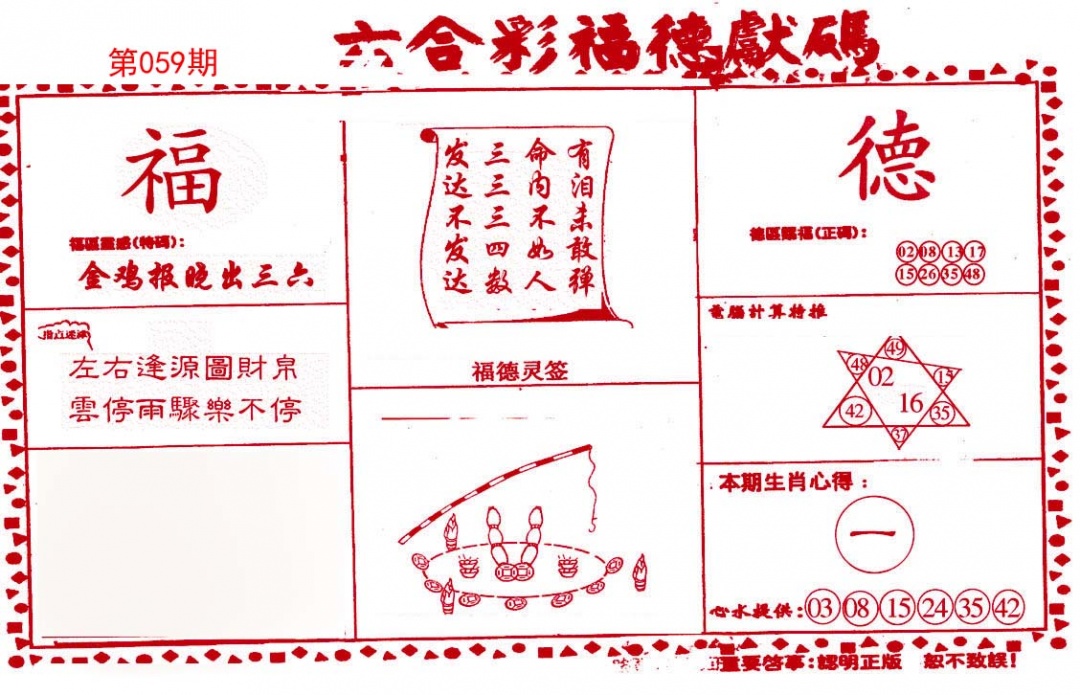 第059期
六合彩福德獻碼
福
福區靈感(特碼):
金鸡报晚出三六
左右逢源圖財帛
雲停雨驟樂不停
有泪未敢弹
命内不如人
三三三四数
发达不发达
福德灵签
德
德區賜福(正碼):
02 08 13 17
15 26 35 48
電腦計算特推
49
48 02 15
42 16 35
37
本期生肖心得:
一
心水提供: 03 08 15 24 35 42
重要啓事:認明正版 恕不致誤!